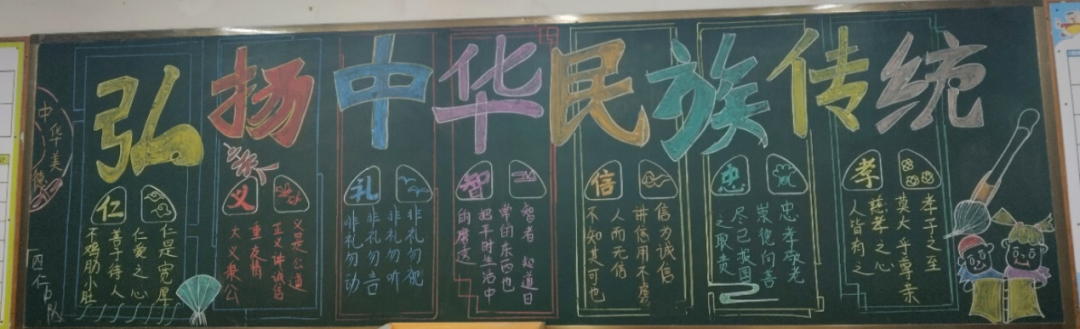 弘扬中华民族传统
中华美
仁
仁是宽厚
仁爱之心
善于待人
不鸡肋小肚
义
义是公道
正义讲诚信
重友情
大义兼公
礼
非礼勿视
非礼勿听
非礼勿言
非礼勿动
智
智者 知道日
常的东西也
把平时生活中
信
信为诚信
讲信用不虚
人而无信
不知其可也
忠
忠孝敬老
崇德向善
尽己报国
之职责
孝
孝子之至
莫大乎尊亲
慈孝之心
人皆有之